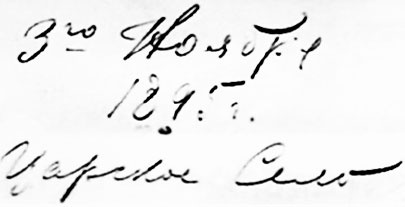 3го Ноября
1895 г.
Царское Село